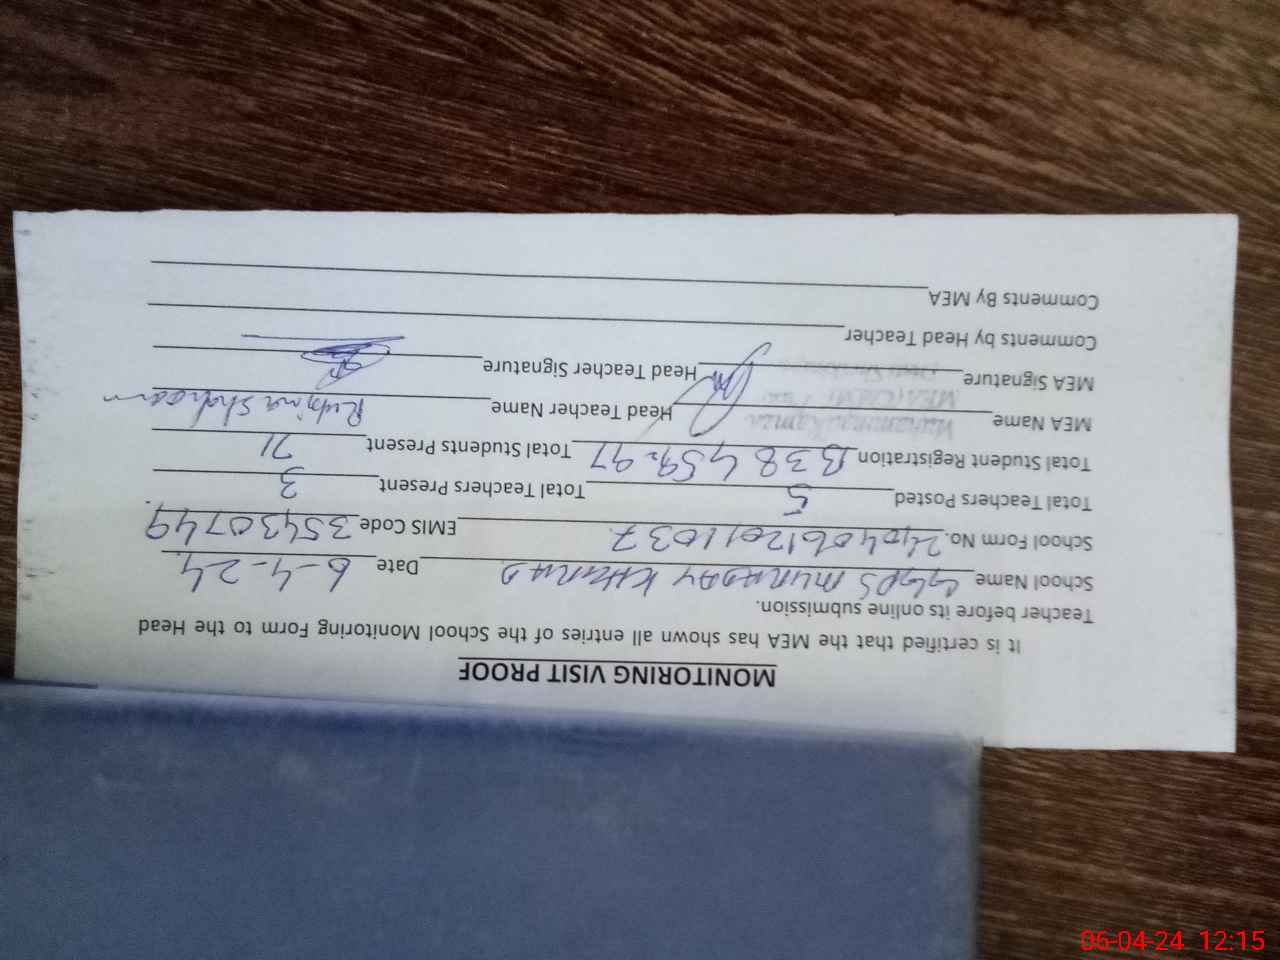 MONITORING VISIT PROOF
It is certified that the MEA has shown all entries of the School Monitoring Form to the Head
Teacher before its online submission.
School Name GGPS Date 6-4-24
School Form No. 24040612011037 EMIS Code 35430749
Total Teachers Posted 5 Total Teachers Present 3
Total Student Registration B38 G59=97 Total Students Present 71
MEA Name Head Teacher Name Rubina Shaheen
MEA Signature Head Teacher Signature
Comments by Head Teacher
Comments By MEA
06-04-24 12:15